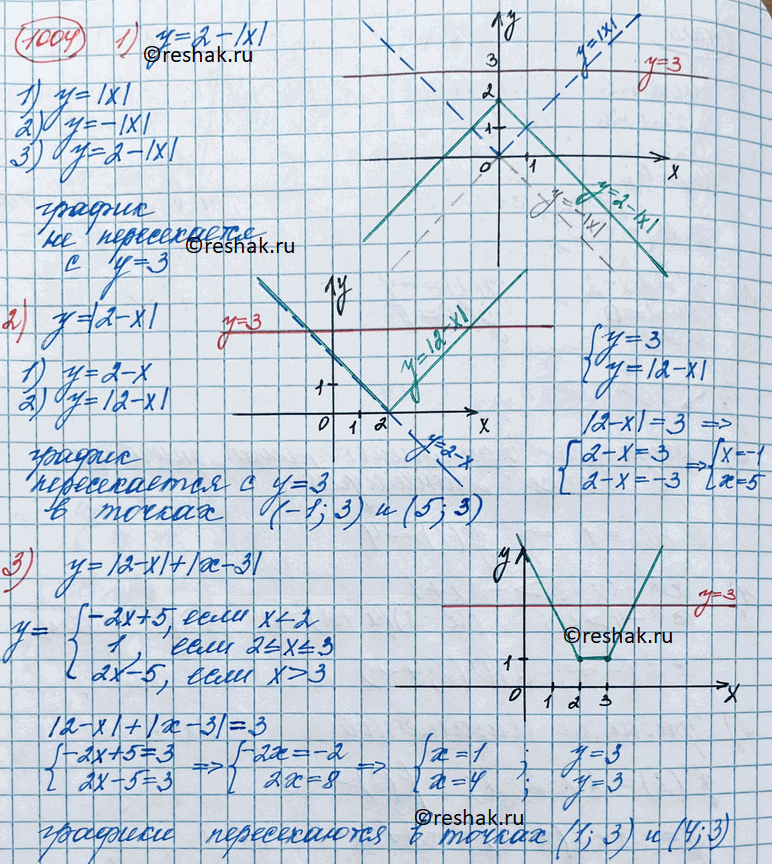 1004 1) y=2-|x|
©reshak.ru
1) y=|x|
2) y=-|x|
3) y=2-|x|
график
не пересекается
с y=3
©reshak.ru
y
3
2
1
0
1
x
y=|x|
y=3
y=-|x|
y=2-|x|
2) y=|2-x|
1) y=2-x
2) y=|2-x|
y
y=3
y=|2-x|
1
0 1 2 x
y=2-x
{y=3
y=|2-x|
|2-x|=3 =>
{2-x=3
2-x=-3 => {x=-1
x=5
график
пересекается с y=3
в точках (-1; 3) и (5; 3)
3) y=|2-x|+|x-3|
y= {-2x+5, если x<2
1, если 2≤x≤3
2x-5, если x>3
y
y=3
©reshak.ru
1
0 1 2 3 x
|2-x|+|x-3|=3
{-2x+5=3
2x-5=3 => {-2x=-2
2x=8 => {x=1 ; y=3
x=4 ; y=3
©reshak.ru
графики пересекаются в точках (1; 3) и (4; 3)